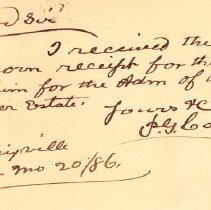 d Sir
I received the
own receipt for th
im for the Adm of
er Estate.
Yours &c
J. G. Co
yville
Mo 20/86.